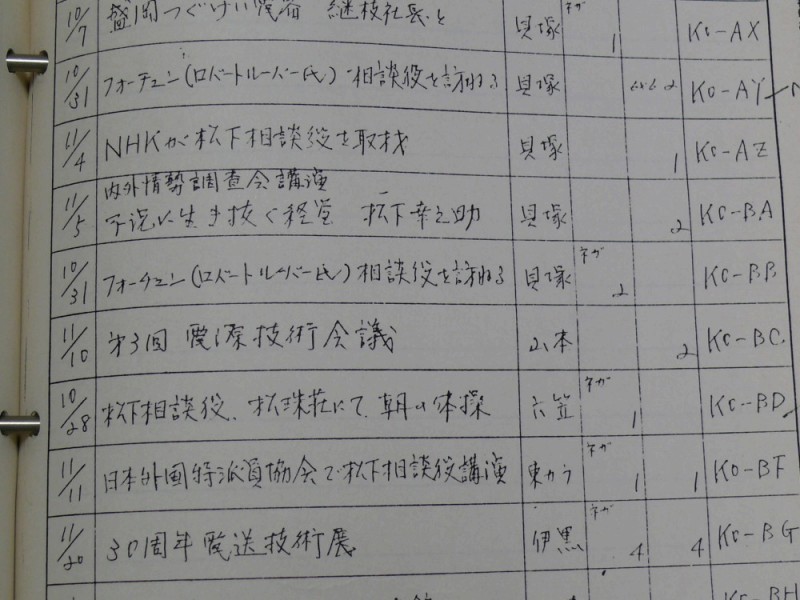 10/7 盛岡つぐけい電器 継枝社長と 貝塚 ネガ 1 KC-AX
10/31 フォーチュン(ロバートルーバー氏)相談役を訪ねる 貝塚 6x6 2 KC-AY
11/4 NHKが松下相談役を取材 貝塚 1 KC-AZ
内外情勢調査会講演
11/5 不況に生き抜く経営 松下幸之助 貝塚 2 KC-BA
10/31 フォーチュン(ロバートルーバー氏)相談役を訪ねる 貝塚 ネガ 2 KC-BB
11/10 第3回 電源技術会議 山本 2 KC-BC
10/28 松下相談役、松珠荘にて、朝の体操 六笠 ネガ 1 KC-BD
11/11 日本外国特派員協会で松下相談役講演 東カラ ネガ 1 1 KC-BF
11/20 30周年電送技術展 伊黒 ネガ 4 4 KC-BG
KC-BH